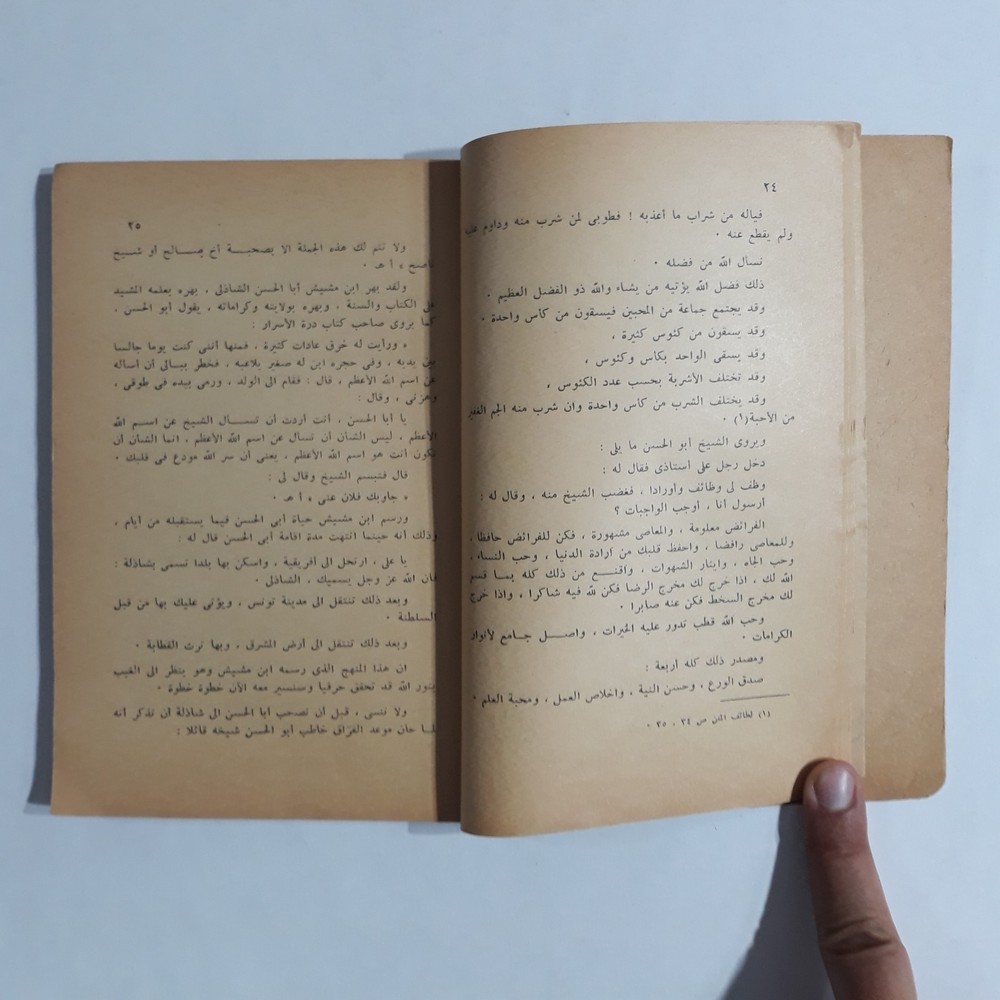 ٢٤
فياله من شراب ما أعذبه ! فطوبى لمن شرب منه وداوم عليه
ولم يقطع عنه .
نسال الله من فضله .
ذلك فضل الله يؤتيه من يشاء والله ذو الفضل العظيم .
وقد يجتمع جماعة من المحبين فيسقون من كاس واحدة .
وقد يسقون من كئوس كثيرة ،
وقد يسقى الواحد بكاس وكئوس ،
وقد تختلف الأشربة بحسب عدد الكئوس ،
وقد يختلف الشرب من كاس واحدة وان شرب منه الجم الغفير
من الأحبة(١) .
ويروى الشيخ أبو الحسن ما يلى :
دخل رجل على أستاذى فقال له :
وظف لى وظائف وأورادا ، فغضب الشيخ منه ، وقال له :
أرسول أنا ، أوجب الواجبات ؟
الفرائض معلومة ، والمعاصى مشهورة ، فكن للفرائض حافظا ،
وللمعاصى رافضا ، واحفظ قلبك من ارادة الدنيا ، وحب النساء ،
وحب الجاه ، وايثار الشهوات ، واقنع من ذلك كله بما قسم
الله لك ، اذا خرج لك مخرج الرضا فكن لله فيه شاكرا ، واذا خرج
لك مخرج السخط فكن عنه صابرا .
وحب الله قطب تدور عليه الخيرات ، واصل جامع لأنوار
الكرامات .
ومصدر ذلك كله أربعة :
صدق الورع ، وحسن النية ، واخلاص العمل ، ومحبة العلم .
(١) لطائف المنن ص ٢٤ ، ٢٥ .
٢٥
ولا تتم لك هذه الجملة الا بصحبة أخ صالح أو شيخ
ناصح » أ هـ .
ولقد بهر ابن مشيش أبا الحسن الشاذلى ، بهره بعلمه المشيد
على الكتاب والسنة ، وبهره بولايته وكراماته ، يقول أبو الحسن ،
كما يروى صاحب كتاب درة الأسرار :
« ورأيت له خرق عادات كثيرة ، فمنها أننى كنت يوما جالسا
بين يديه ، وفى حجره ابن له صغير يلاعبه ، فخطر ببالى أن اساله
عن اسم الله الأعظم ، قال : فقام الى الولد ، ورمى بيده فى طوقى ،
وهزنى ، وقال :
يا أبا الحسن ، أنت أردت أن تسال الشيخ عن اسم الله
الأعظم ، ليس الشأن أن تسال عن اسم الله الأعظم ، انما الشأن أن
تكون أنت هو اسم الله الأعظم ، يعنى أن سر الله مودع فى قلبك .
قال فتبسم الشيخ وقال لى :
« جاوبك فلان عنى » أ هـ .
ورسم ابن مشيش حياة أبى الحسن فيما يستقبله من أيام ،
وذلك أنه حينما انتهت مدة اقامة أبى الحسن قال له :
يا على ، ارتحل الى أفريقية ، واسكن بها بلدا تسمى بشاذلة :
فان الله عز وجل يسميك ، الشاذلى .
وبعد ذلك تنتقل الى مدينة تونس ، ويؤتى عليك بها من قبل
السلطنة .
وبعد ذلك تنتقل الى أرض المشرق ، وبها ترث القطابة .
ان هذا المنهج الذى رسمه ابن مشيش وهو ينظر الى الغيب
بنور الله قد تحقق حرفيا وسنسير معه الآن خطوة خطوة .
ولا ننسى ، قبل أن نصحب أبا الحسن الى شاذلة أن نذكر أنه
لما حان موعد الفراق خاطب أبو الحسن شيخه قائلا :